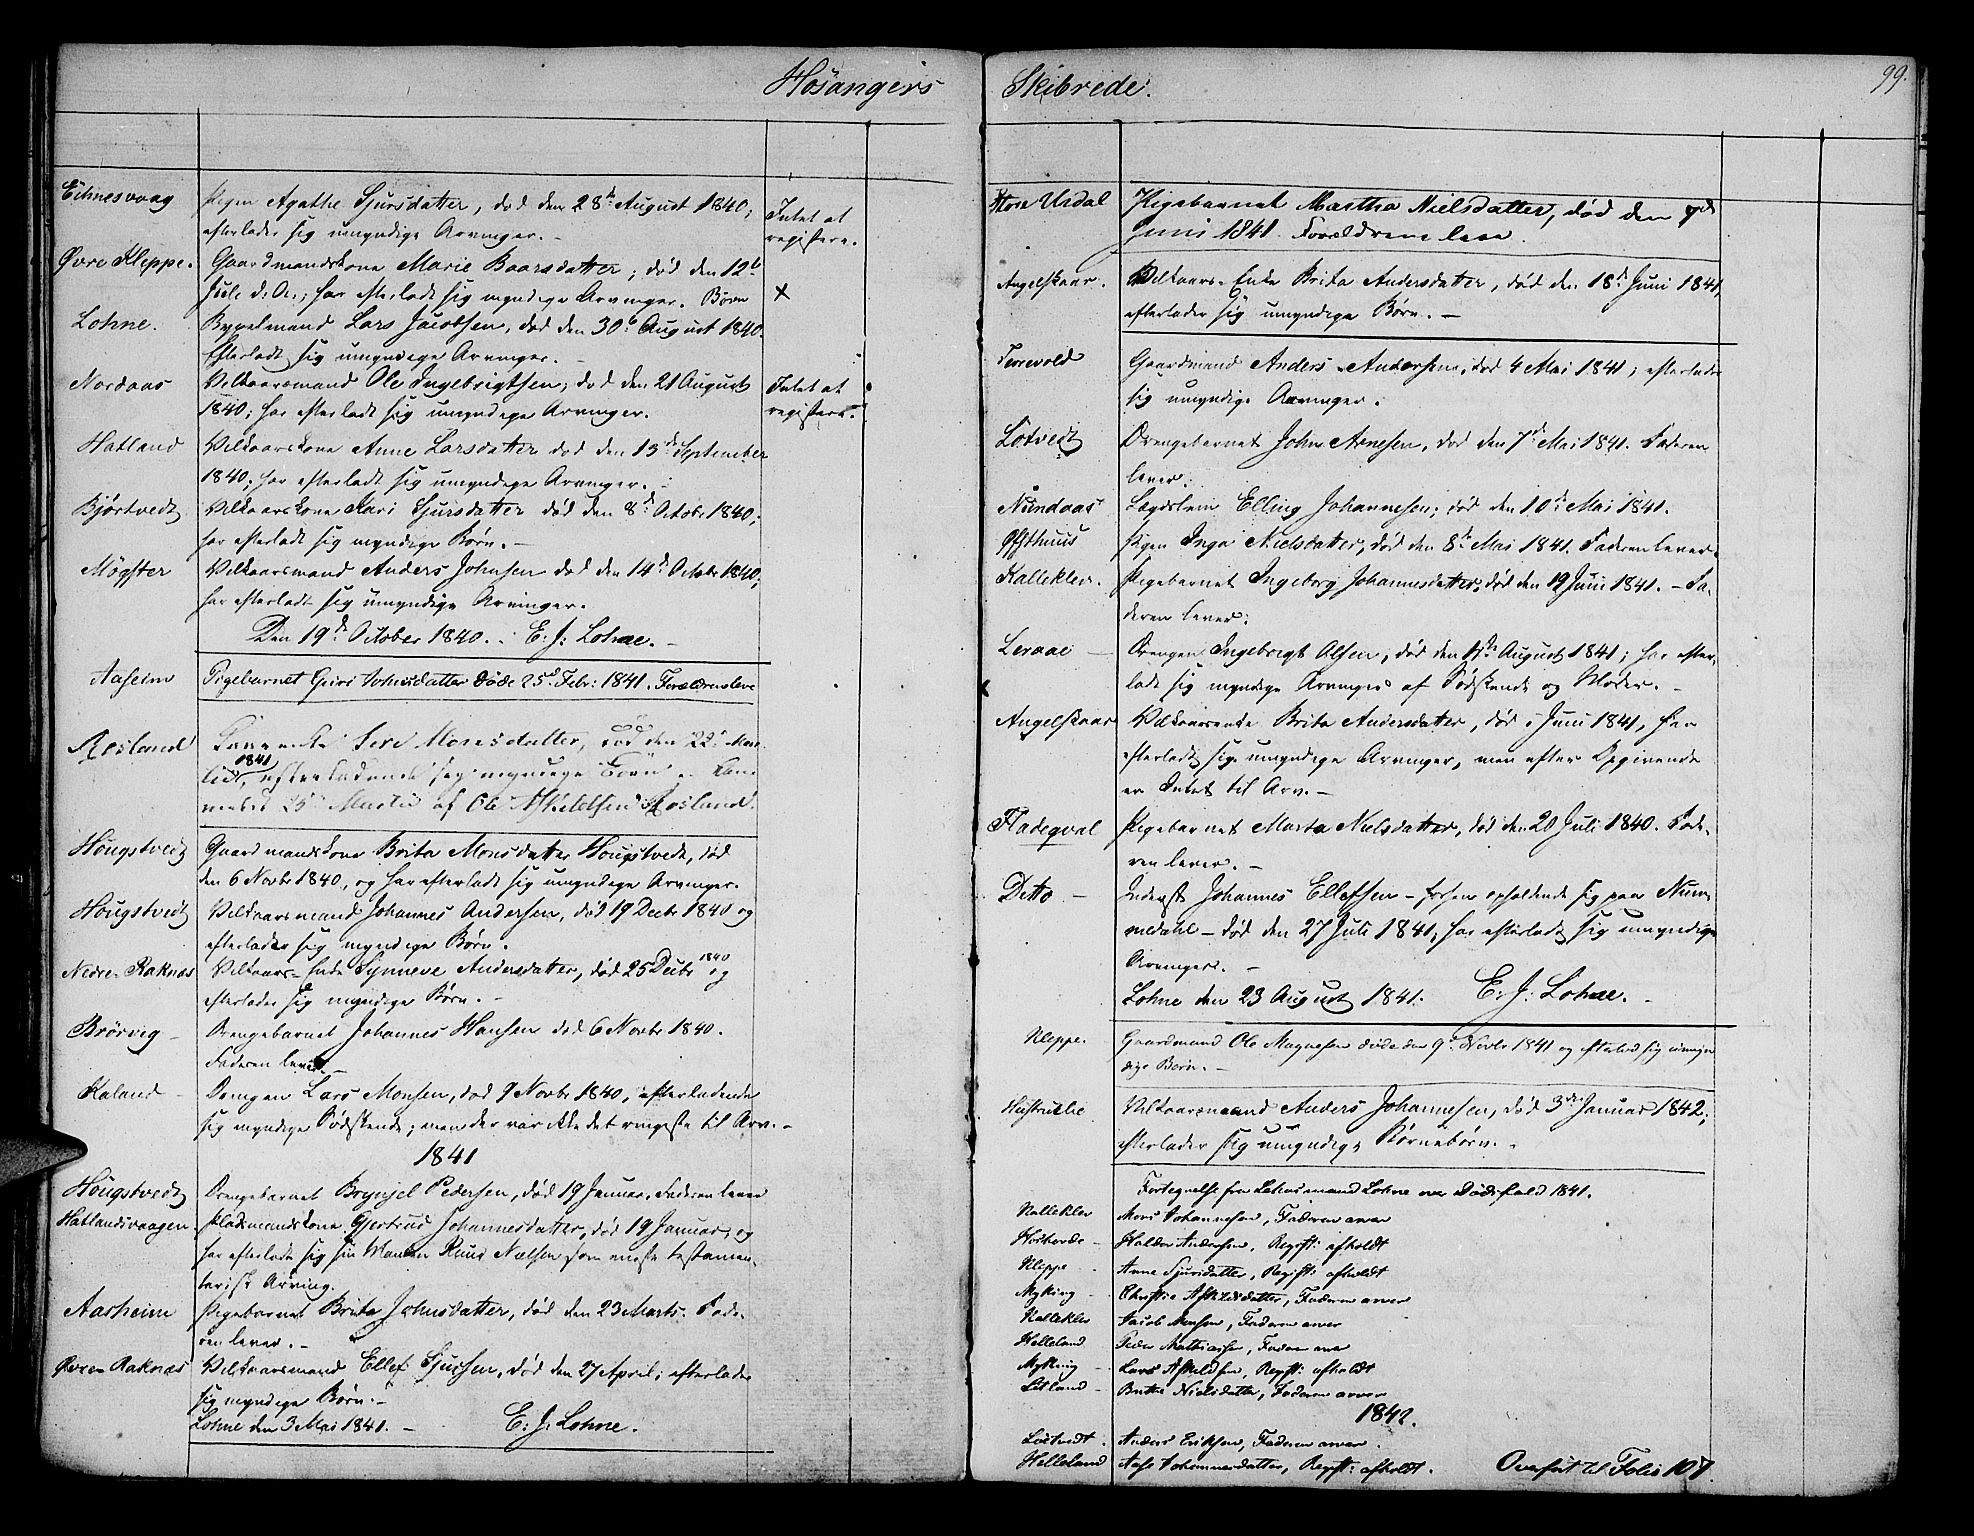 Hosangers Skibrede. 99.
Eihnesvaag Pigen Agathe Sjursdatter, død den 28de August 1840; Intet at
efterlader sig umyndige Arvinger. - registere.
Øvre Kleppe. Gaardmandskone Marie Baarsdatter; død den 12te
Juli d. A.; har efterladt sig myndige Arvinger. Børn X
Lohne. Bygselmand Lars Jacobsen, død den 30te August 1840.
Efterladt sig umyndige Arvinger. -
Nordaas Vilkaarsmand Ole Ingebrigtsen; død den 21 August Intet at
1840; har efterladt sig umyndige Arvinger. registere.
Hatland Vilkaarskone Anne Larsdatter død den 13de September
1840; har efterladt sig umyndige Arvinger. -
Bjørtvedt Vilkaarskone Kari Sjursdatter død den 8de Octobr 1840;
har efterladt sig myndige Børn. -
Møgster Vilkaarsmand Anders Johnsen død den 14de Octobr 1840;
har efterladt sig umyndige Arvinger.
Den 19de October 1840. - E. J. Lohne. -
Aaseim Pigebarnet Guri Johnsdatter døde 25de Febr: 1841. Forældrene leve
Rosland Sere Monsdatter, død den 22de
1841 efterladende sig myndige Børn
25de Martii af Ole Askildsen Rosland.
Hougstvedt Gaardmandskone Brita Monsdatter Hougstvedt, død
den 6 Novbr 1840, og har efterladt sig umyndige Arvinger.
Hougstvedt Vilkaarsmand Johannes Andersen, død 19 Decbr 1840 og
efterlader sig myndige Børn.
Nedre Raknæs Vilkaars-Enke Synneve Andersdatter, død 25 Decbr 1840 og
efterlader sig myndige Børn. -
Brørvig - Drengebarnet Johannes Hansen død 6 Novbr 1840.
Faderen lever. -
Kaland - Drengen Lars Monsen, død 9 Novbr 1840, efterladende
sig myndige Sødskende; men der var ikke det ringeste til Arv. -
1841
Hougstvedt Drengebarnet Brynjel Pedersen, død 19 Januar. Faderen lever
Hatlandsvaagen Pladsmandskone Gjertrud Johannesdatter, død 19 Januar, og
har efterladt sig sin Mand Knud Nielsen som eneste testamen-
tarisk Arving.
Aasheim Pigebarnet Brita Johnsdatter, død den 23 Marts. Fade-
ren lever. -
Øvre Raknæs Vilkaarsmand Ellef Sjursen, død den 27 April; efterlader
sig myndige Børn. -
Lohne den 3 Mai 1841. - E. J. Lohne.
Store Urdal Pigebarnet Martha Nielsdatter, død den 7de
Juni 1841. Forældrene leve.
Angelskaar. Vilkaars-Enke Brita Andersdatter, død den 18de Juni 1841,
efterlader sig umyndige Børn. -
Terrevold Gaardmand Anders Andersen, død 4 Mai 1841; efterlader
sig umyndige Arvinger.
Lotvedt Drengebarnet John Arnesen, død den 7de Mai 1841. Faderen
lever.
Nundaas Lægdslem Elling Johannesen; død den 10de Mai 1841.
Pigen Inga Nielsdatter, død den 8de Mai 1841. Faderen lever.
Kalleklev. Pigebarnet Ingeborg Johannesdatter, død den 19 Juni 1841. - Fa-
deren lever.
Leraae - Drengen Ingebrigt Olsen, død den 11te August 1841; har efter-
ladt sig myndige Arvinger af Sødskende og Moder. -
Angelskaar Vilkaarsenke Brita Andersdatter, død i Juni 1841, har
efterladt sig umyndige Arvinger, men efter Opgivende
er Intet til Arv. -
Fladeqval Pigebarnet Marta Nielsdatter, død den 20 Juli 1840. Fade-
ren lever. -
Ditto - Inderst Johannes Ellefsen - forhen opholdende sig paa Num-
medahl - død den 27 Juli 1841; har efterladt sig umyndige
Arvinger. -
Lohne den 23 August 1841. E. J. Lohne. -
Kleppe. Gaardmand Ole Magnesen døde den 9de Novbr 1841 og efterlod sig umyn-
dige Børn. -
Vilkaarsmand Anders Johannesen, død 3die Januar 1842;
efterlader sig umyndige Børnebørn. -
Fortegnelse fra Lehnsmand Lohne over Dødsfald 1841.
Kalleklev Mons Johannesen, Faderen arver
Haldor Andersen, Regist: afholdt
Kleppe - Anne Sjursdatter, Regist: afholdt
Myking - Christie Askildsdatter, Faderen arver
Kalleklev Jacob Monsen, Faderen arver
Helleland Peder Mathiassen, Faderen arver
Myking - Lars Askeldsen, Regist: afholdt
Litland - Brithe Nielsdatter, Faderen arver
1842.
Lotvedt. Anders Eriksen, Faderen arver.
Helleland Aase Johannesdatter, Regist: afholdt. Overført til Folio 107.